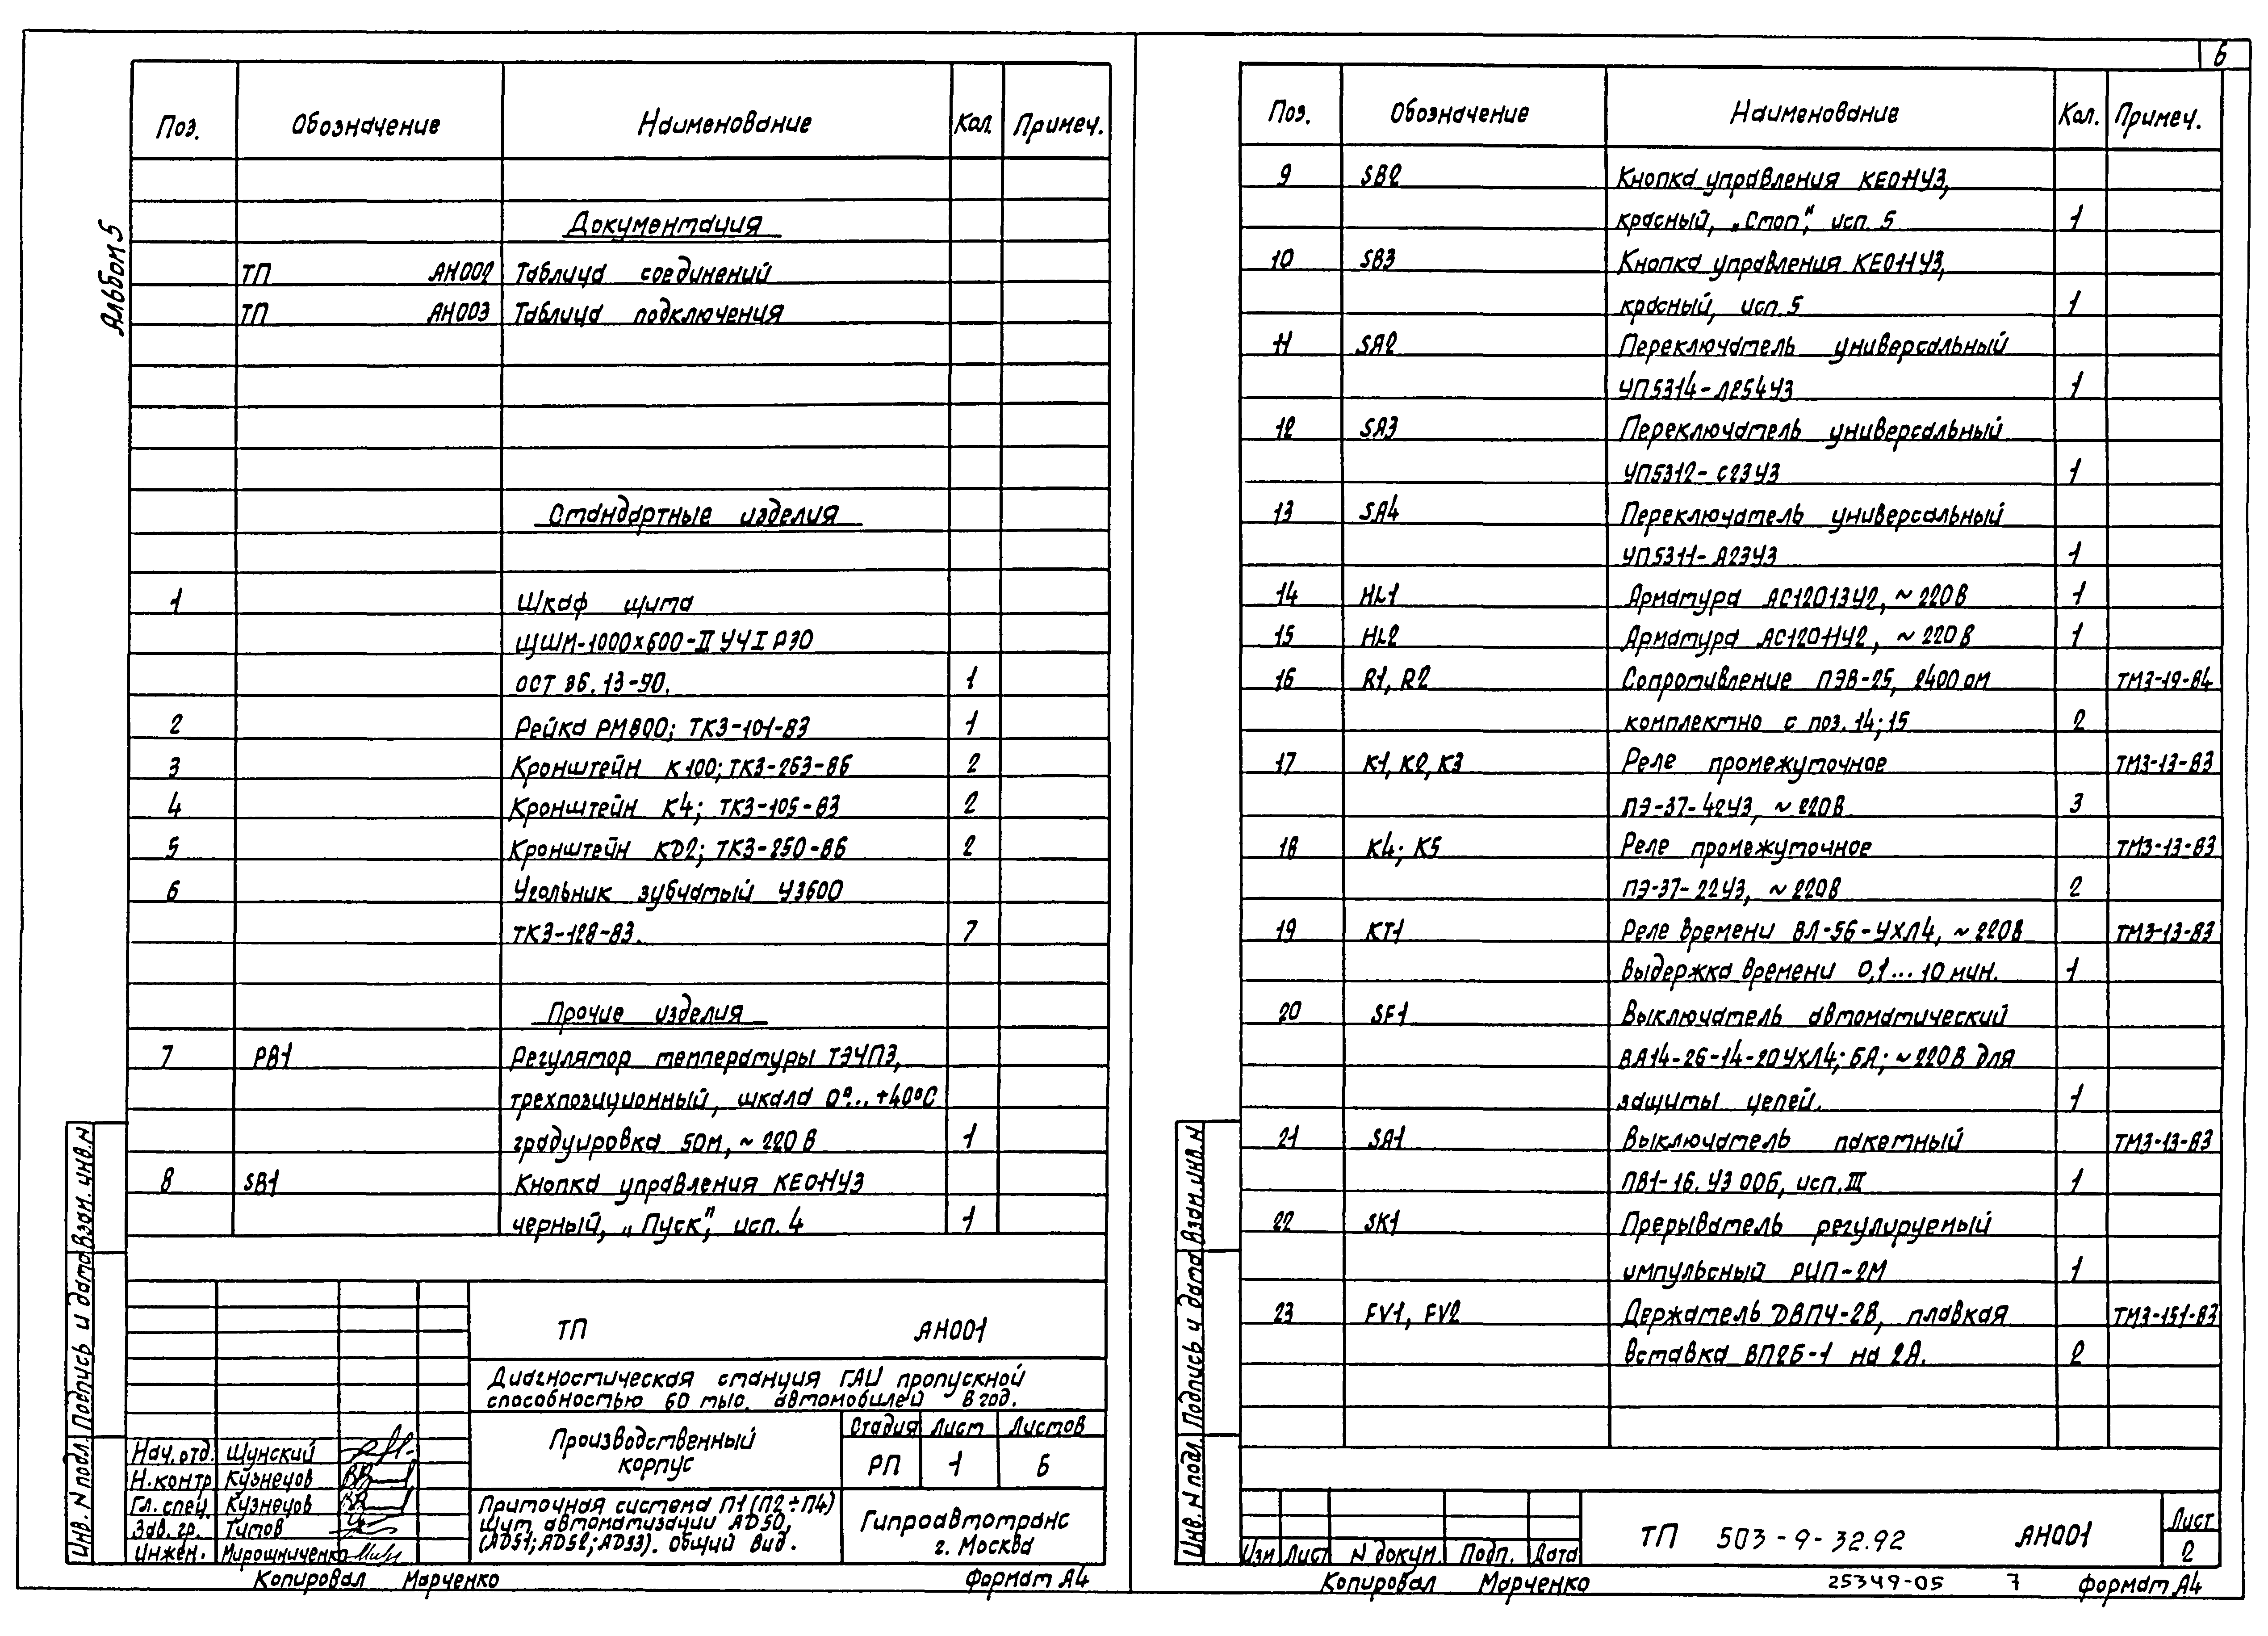 Альбом 5
Поз. Обозначение Наименование Кол. Примеч.
Документация
ТП АН002 Таблица соединений
ТП АН003 Таблица подключения
Стандартные изделия
1 Шкаф щита
ЩШМ-1000×600-II УЧ I Р30
ОСТ 36.13-90. 1
2 Рейка РМ800; ТК3-101-83 1
3 Кронштейн К100; ТК3-263-86 2
4 Кронштейн К4; ТК3-105-83 2
5 Кронштейн КD2; ТК3-250-86 2
6 Угольник зубчатый У3600
ТК3-128-83. 7
Прочие изделия
7 РВ1 Регулятор температуры ТЭ4П3,
трехпозиционный, шкала 0°...+40°С
градуировка 50м, ~220В 1
8 SB1 Кнопка управления КЕ011У3
черный, „Пуск", исп. 4 1
ТП АН001
Диагностическая станция ГАИ пропускной
способностью 60 тыс. автомобилей в год.
Производственный
корпус
Стадия Лист Листов
РП 1 6
Нач.отд. Шунский
Н.контр Кузнецов
Гл. спец. Кузнецов
Зав. гр. Титов
Инжен. Мирошниченко
Приточная система П1 (П2÷П4)
Щит автоматизации AD50,
(AD51; AD52; AD53). Общий вид.
Гипроавтотранс
г. Москва
Копировал Марченко Формат А4
Инв. N подл. Подпись и дата Взам. инв. N
6
Поз. Обозначение Наименование Кол. Примеч.
9 SB2 Кнопка управления КЕ011У3,
красный, „Стоп", исп. 5 1
10 SB3 Кнопка управления КЕ011У3,
красный, исп. 5 1
11 SA2 Переключатель универсальный
УП5314-Ле54У3 1
12 SA3 Переключатель универсальный
УП5312-С23У3 1
13 SA4 Переключатель универсальный
УП5311-А23У3 1
14 HL1 Арматура АС12013У2, ~220В 1
15 HL2 Арматура АС12011У2, ~220В 1
16 R1, R2 Сопротивление ПЭВ-25, 2400 ом ТМ3-19-84
комплектно с поз. 14; 15 2
17 К1, К2, К3 Реле промежуточное ТМ3-13-83
ПЭ-37-42У3, ~220В 3
18 К4; К5 Реле промежуточное ТМ3-13-83
ПЭ-37-22У3, ~220В 2
19 КТ1 Реле времени ВЛ-56-УХЛ4, ~220В ТМ3-13-83
выдержка времени 0,1...10 мин. 1
20 SF1 Выключатель автоматический
ВА14-26-14-20УХЛ4; 6А; ~220В для
защиты цепей. 1
21 SA1 Выключатель пакетный ТМ3-13-83
ПВ1-16.У3 00б, исп. III 1
22 SK1 Прерыватель регулируемый
импульсный РИП-2М 1
23 FV1, FV2 Держатель ДВП4-2В, плавкая ТМ3-151-83
вставка ВП2Б-1 на 2А. 2
Изм Лист N докум. Подп. Дата
ТП 503-9-32.92 АН001
Лист
2
Копировал Марченко 25349-05 7 Формат А4
Инв. N подл. Подпись и дата Взам. инв. N